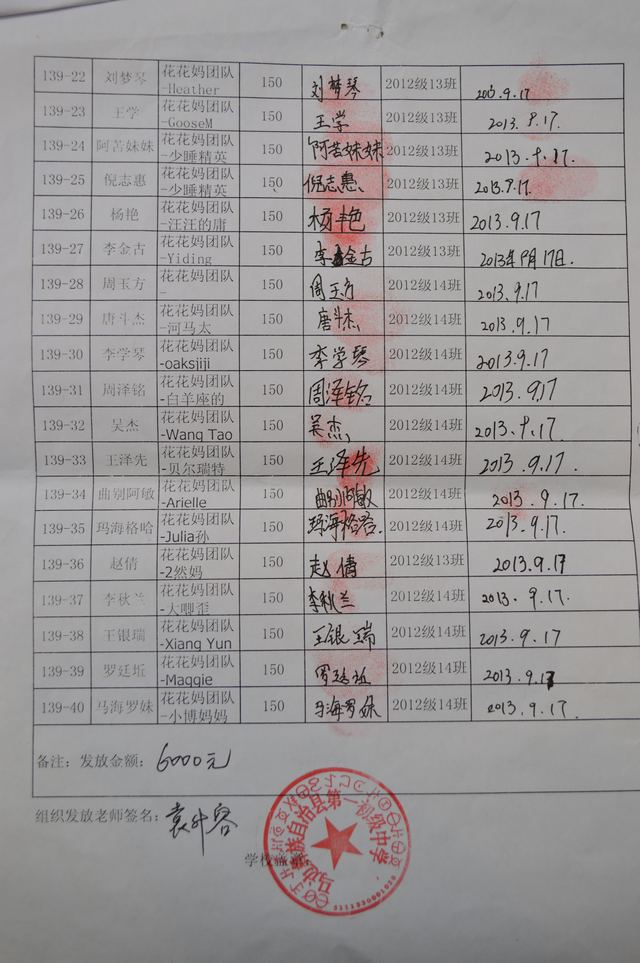 139-22 刘梦琴 花花妈团队-Heather 150 刘梦琴 2012级13班 2013.9.17
139-23 王学 花花妈团队-GooseM 150 王学 2012级13班 2013.9.17.
139-24 阿苦妹妹 花花妈团队-少睡精英 150 阿苦妹妹 2012级13班 2013.9.17.
139-25 倪志惠 花花妈团队-少睡精英 150 倪志惠 2012级13班 2013.9.17.
139-26 杨艳 花花妈团队-汪汪的庸 150 杨艳 2012级13班 2013.9.17
139-27 李金古 花花妈团队-Yiding 150 李金古 2012级13班 2013年9月17日.
139-28 周玉方 花花妈团队- 150 周玉方 2012级14班 2013.9.17
139-29 唐斗杰 花花妈团队-河马太 150 唐斗杰 2012级14班 2013.9.17
139-30 李学琴 花花妈团队-oaksjiji 150 李学琴 2012级14班 2013.9.17
139-31 周泽铭 花花妈团队-白羊座的 150 周泽铭 2012级14班 2013.9.17
139-32 吴杰 花花妈团队-Wang Tao 150 吴杰 2012级14班 2013.9.17.
139-33 王泽先 花花妈团队-贝尔瑞特 150 王泽先 2012级14班 2013.9.17.
139-34 曲别阿敏 花花妈团队-Arielle 150 曲别阿敏 2012级14班 2013.9.17.
139-35 玛海格哈 花花妈团队-Julia孙 150 2012级14班 2013.9.17.
139-36 赵倩 花花妈团队-2然妈 150 赵倩 2012级13班 2013.9.17
139-37 李秋兰 花花妈团队-大嘢歪 150 李秋兰 2012级14班 2013.9.17.
139-38 王银瑞 花花妈团队-Xiang Yun 150 王银瑞 2012级14班 2013.9.17
139-39 罗廷坵 花花妈团队-Maggie 150 2012级14班 2013.9.17
139-40 马海罗妹 花花妈团队-小博妈妈 150 马海罗妹 2012级14班 2013.9.17.
备注：发放金额：6000元
组织发放老师签名：
学校盖章：
马边彝族自治县第一初级中学